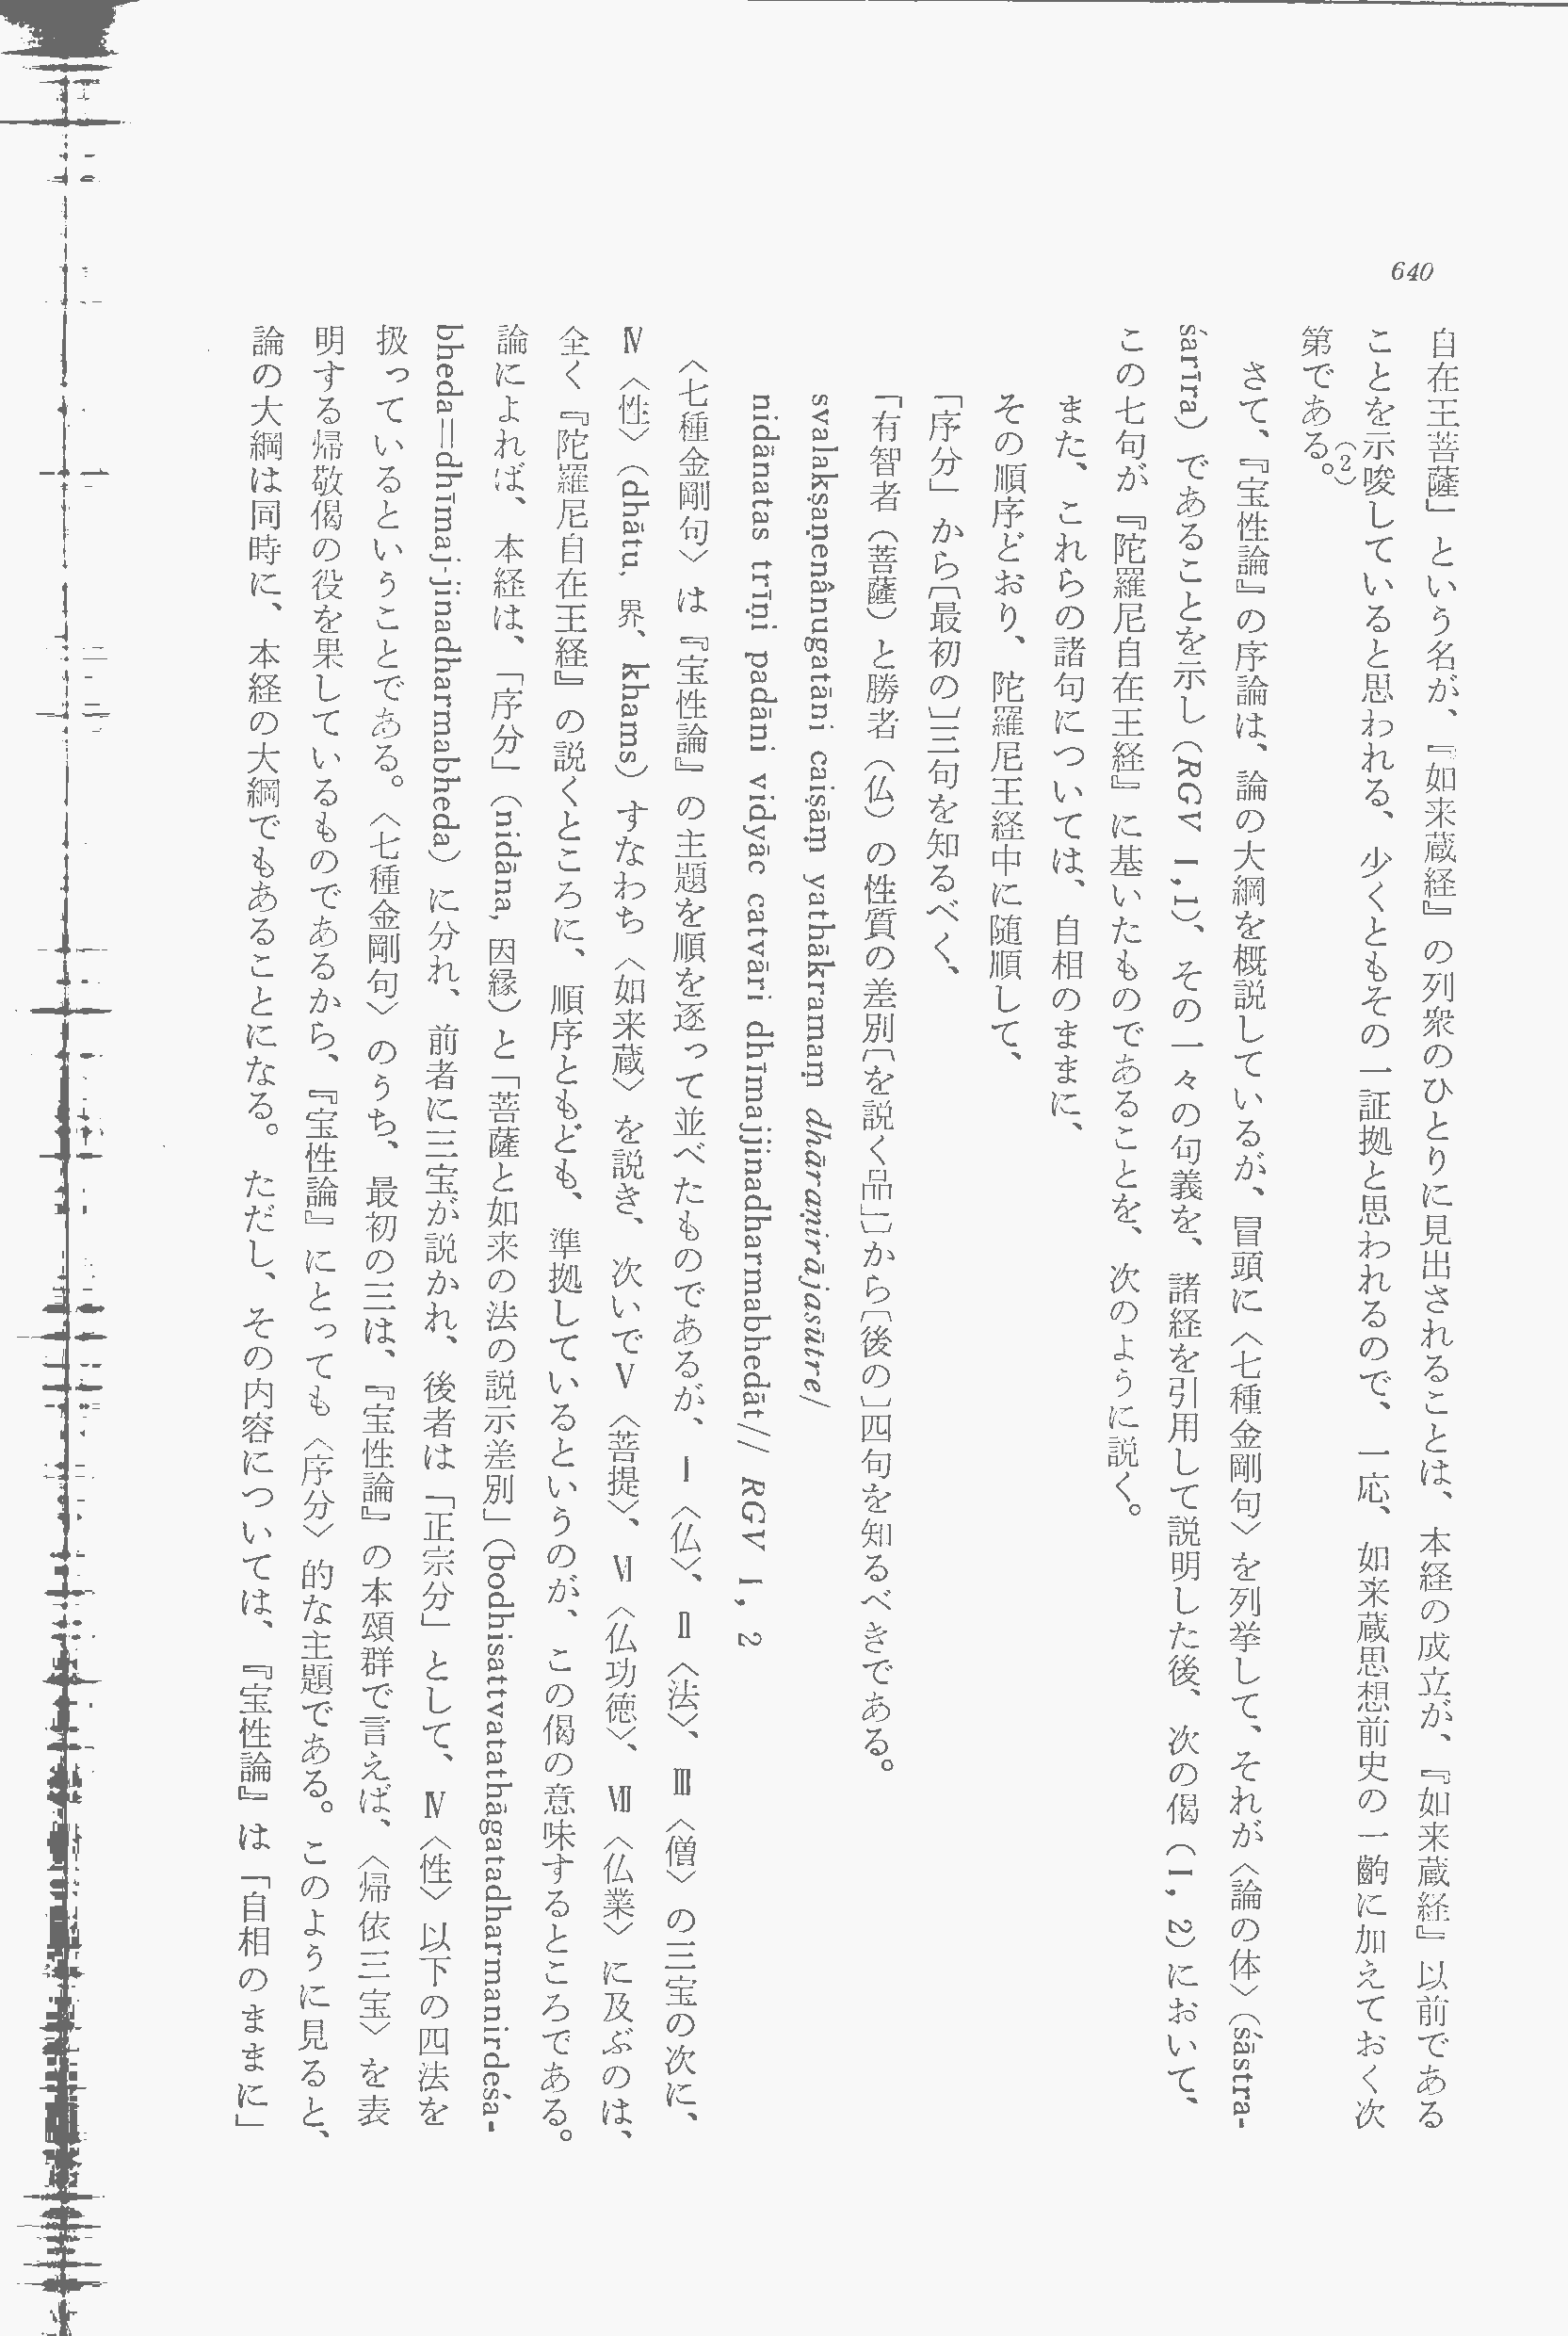 640
自在王菩薩」という名が、『如来蔵経』の列衆のひとりに見出されることは、本経の成立が、『如来蔵経』以前である
ことを示唆していると思われる、少くともその一証拠と思われるので、一応、如来蔵思想前史の一齣に加えておく次
第である。(2)
さて、『宝性論』の序論は、論の大綱を概説しているが、冒頭に〈七種金剛句〉を列挙して、それが〈論の体〉(śāstra-
śarīra) であることを示し (RGV I,1)、その一々の句義を、諸経を引用して説明した後、次の偈 (I, 2) において、
この七句が『陀羅尼自在王経』に基いたものであることを、次のように説く。
また、これらの諸句については、自相のままに、
その順序どおり、陀羅尼王経中に随順して、
「序分」から〔最初の〕三句を知るべく、
「有智者(菩薩)と勝者(仏)の性質の差別〔を説く品〕」から〔後の〕四句を知るべきである。
svalakṣaṇenânugatāni caiṣāṃ yathākramaṃ dhāraṇirājasūtre/
nidānatas trīṇi padāni vidyāc catvāri dhīmajjinadharmabhedāt// RGV I, 2
〈七種金剛句〉は『宝性論』の主題を順を逐って並べたものであるが、Ⅰ〈仏〉、Ⅱ〈法〉、Ⅲ〈僧〉の三宝の次に、
Ⅳ〈性〉(dhātu, 界、khams) すなわち〈如来蔵〉を説き、次いでⅤ〈菩提〉、Ⅵ〈仏功徳〉、Ⅶ〈仏業〉に及ぶのは、
全く『陀羅尼自在王経』の説くところに、順序ともども、準拠しているというのが、この偈の意味するところである。
論によれば、本経は、「序分」(nidāna, 因縁) と「菩薩と如来の法の説示差別」(bodhisattvatathāgatadharmanirdeśa-
bheda=dhīmaj-jinadharmabheda) に分れ、前者に三宝が説かれ、後者は「正宗分」として、Ⅳ〈性〉以下の四法を
扱っているということである。〈七種金剛句〉のうち、最初の三は、『宝性論』の本頌群で言えば、〈帰依三宝〉を表
明する帰敬偈の役を果しているものであるから、『宝性論』にとっても〈序分〉的な主題である。このように見ると、
論の大綱は同時に、本経の大綱でもあることになる。ただし、その内容については、『宝性論』は「自相のままに」